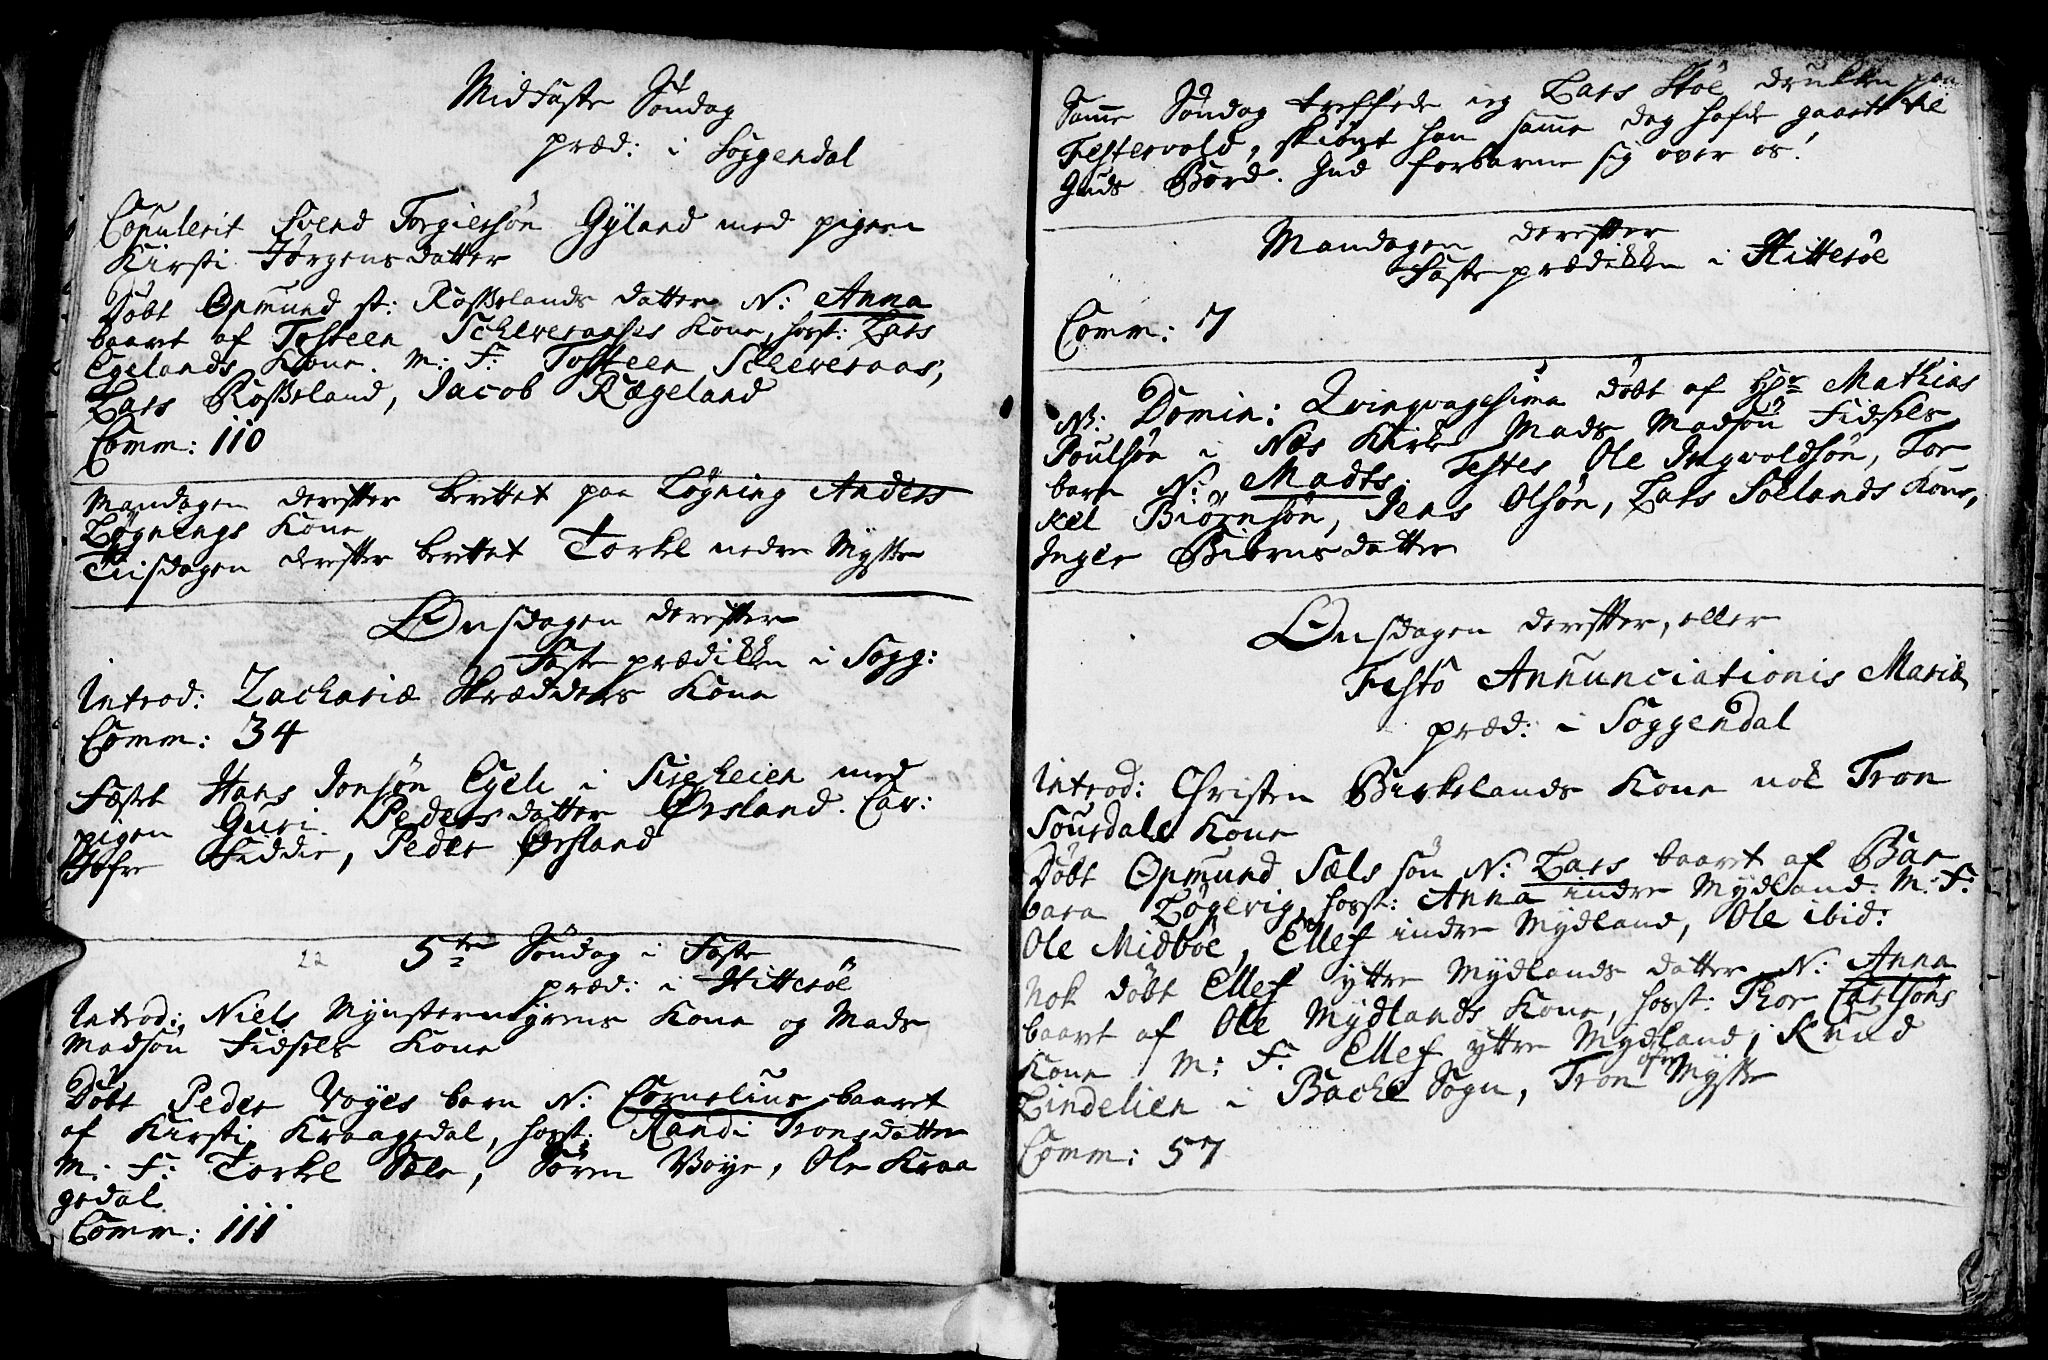 MidFaste Søndag
præd: i Soggendal
Copulerit Svend Torgiersøn Gÿland med pigen
Kirsti Jørgensdatter
Døbt Opmund st: Rosselands datter N: Anna
baaret af Tosteen Scheveraases Kone, hosst: Lars
Egelands Kone. M: F: Tosteen Scheveraas,
Lars Rosseland, Jacob Rægeland
Comm: 110
Mandagen derefter berettet paa Løgning Anders
Løgnings Kone
Tiisdagen derefter berettet Torkel nedre Mysse
Onsdagen derefter
Faste prædikken i Sogg:
Introd: Zachariæ Skrædders Kone
Comm: 34
Fæstet Hans Jonsøn Egeli i Sireheien med
pigen Guri Pedersdatter Ørsland. Cav:
Tofre Fiddie, Peder Ørsland
22 5te Søndag i Faste
præd: i Hitterøe
Introd: Niels Mÿnstermÿrens Kone og Mads
Madsøn Fidsels Kone
Døbt Peder Voÿes barn N: Cornelius baaret
af Kirsti Kraagedal, hosst: Randi Tronsdatter
M: F: Torkel Sæle, Søren Voÿe, Ole Kraa
gedal
Comm: 111
Samme Søndag treffede ieg Lars Støl drukken paa
Festervold, skiønt han samme dag hafde gaaet til
Guds Bord. Gud forbarme sig over os!
Mandagen derefter
Faste prædikken i Hitterøe
Comm: 7
NB: Domin: Qvinqvagesima døbt af Hr Mathias
Poulsøn i Nes Kirke Mads Madsøn Fidsels
barn N: Madts. Testes Ole Ingvoldsøn, Tor
kel Biørnsøn, Jens Olsøn, Lars Sølands Kone,
Inger Biørnsdatter
Onsdagen derefter, eller
Festo Annunciationis Mariæ
præd: i Soggendal
Introd: Christen Birkelands Kone nok Tron
Sourdals Kone
Døbt Opmund Sæls søn N: Lars baaret af Bar
bara Løgevig, hosst: Anna indre Mydland. M: F:
Ole Midbøe, Ellef indre Mydland, Ole ibid:
Nok døbt Ellef ÿttre Mydlands datter N: Anna
baaret af Ole Mydlands Kone, hosst: Thor Carlsøns
Kone M: F: Ellef ÿttre Mydland, Knud
Lindelien i Bache Sogn, Tron øfre Mysse
Comm: 57